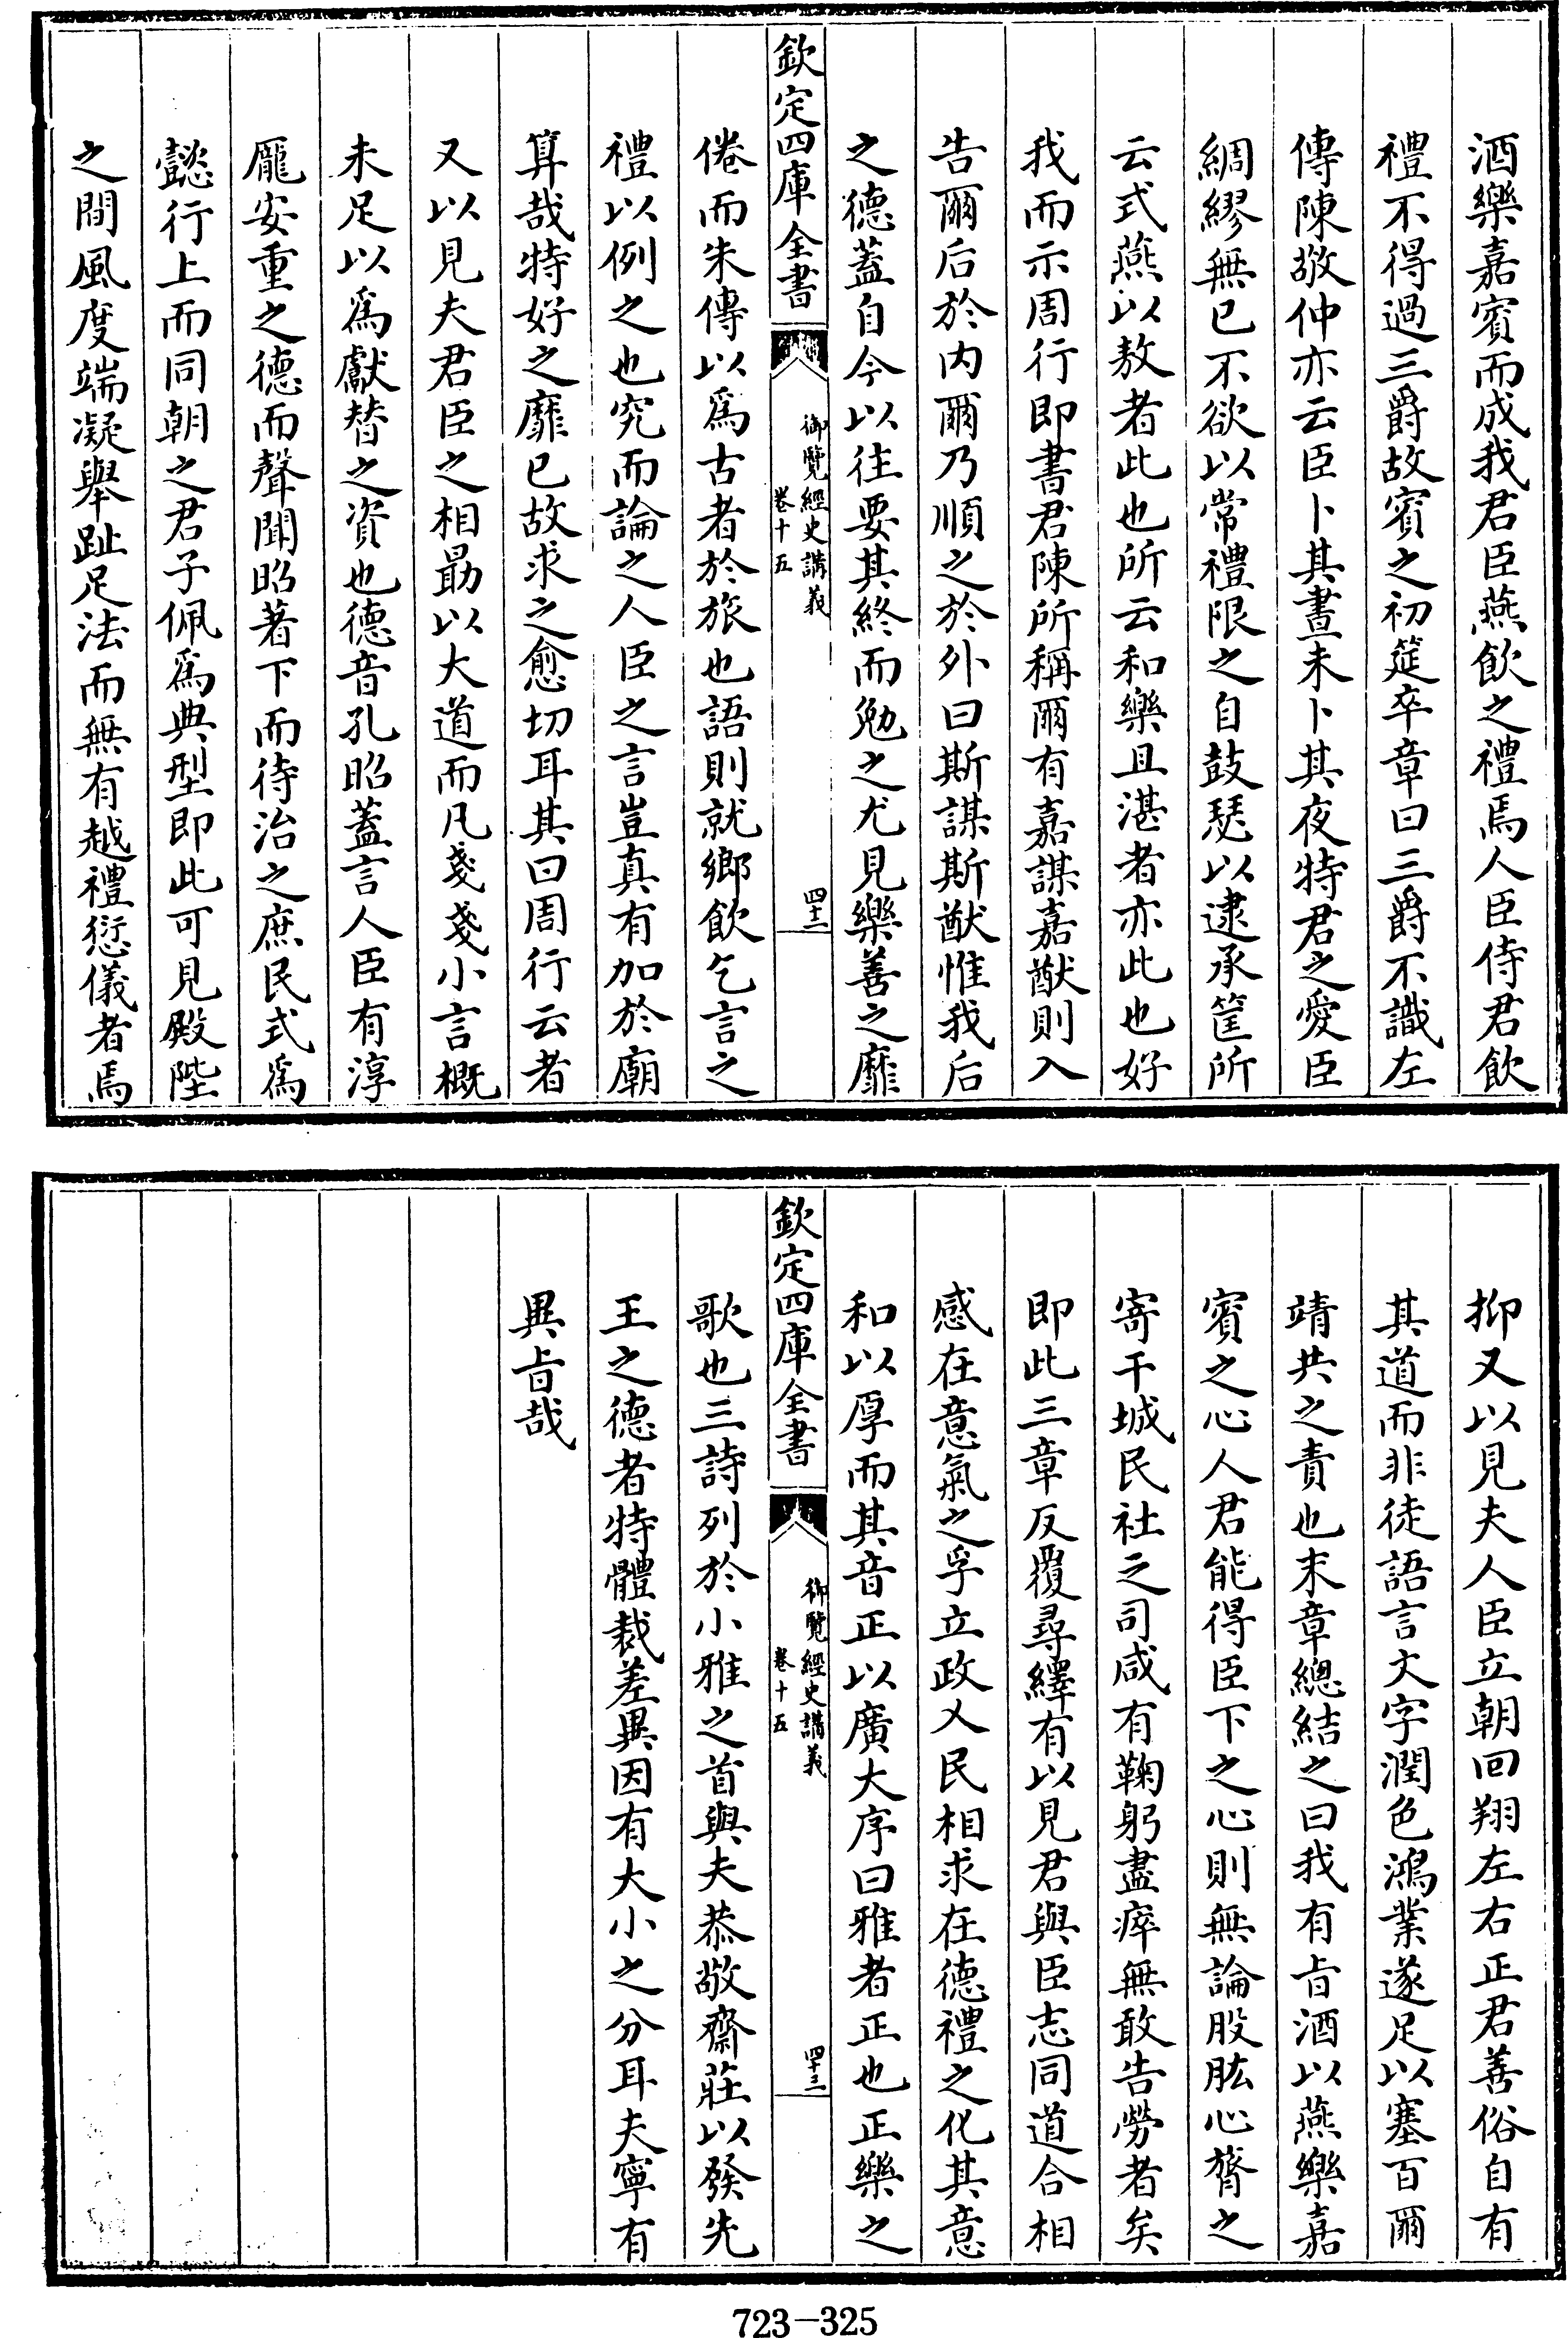 酒樂嘉賓而成我君臣燕飲之禮焉人臣侍君飲
禮不得過三爵故賓之初筵卒章曰三爵不識左
傳陳敬仲亦云臣卜其晝未卜其夜特君之愛臣
綢繆無已不欲以常禮限之自鼓瑟以逮承筐所
云式燕以敖者此也所云和樂且湛者亦此也好
我而示周行即書君陳所稱爾有嘉謀嘉猷則入
告爾后於内爾乃順之於外曰斯謀斯猷惟我后
之德蓋自今以往要其終而勉之尤見樂善之靡
欽定四庫全書
御覽經史講義
卷十五
四十二
倦而朱傳以為古者於旅也語則就鄉飲乞言之
禮以例之也究而論之人臣之言豈真有加於廟
算哉特好之靡已故求之愈切耳其曰周行云者
又以見夫君臣之相勗以大道而凡戔戔小言概
未足以為獻替之資也德音孔昭蓋言人臣有淳
龐安重之德而聲聞昭著下而待治之庶民式為
懿行上而同朝之君子佩為典型即此可見殿陛
之間風度端凝舉趾足法而無有越禮愆儀者焉
抑又以見夫人臣立朝回翔左右正君善俗自有
其道而非徒語言文字潤色鴻業遂足以塞百爾
靖共之責也末章總結之曰我有旨酒以燕樂嘉
賓之心人君能得臣下之心則無論股肱心膂之
寄干城民社之司咸有鞠躬盡瘁無敢告勞者矣
即此三章反覆尋繹有以見君與臣志同道合相
感在意氣之孚立政乂民相求在德禮之化其意
和以厚而其音正以廣大序曰雅者正也正樂之
欽定四庫全書
御覽經史講義
卷十五
四十三
歌也三詩列於小雅之首與夫恭敬齋莊以發先
王之德者特體裁差異因有大小之分耳夫寧有
異旨哉
723-325